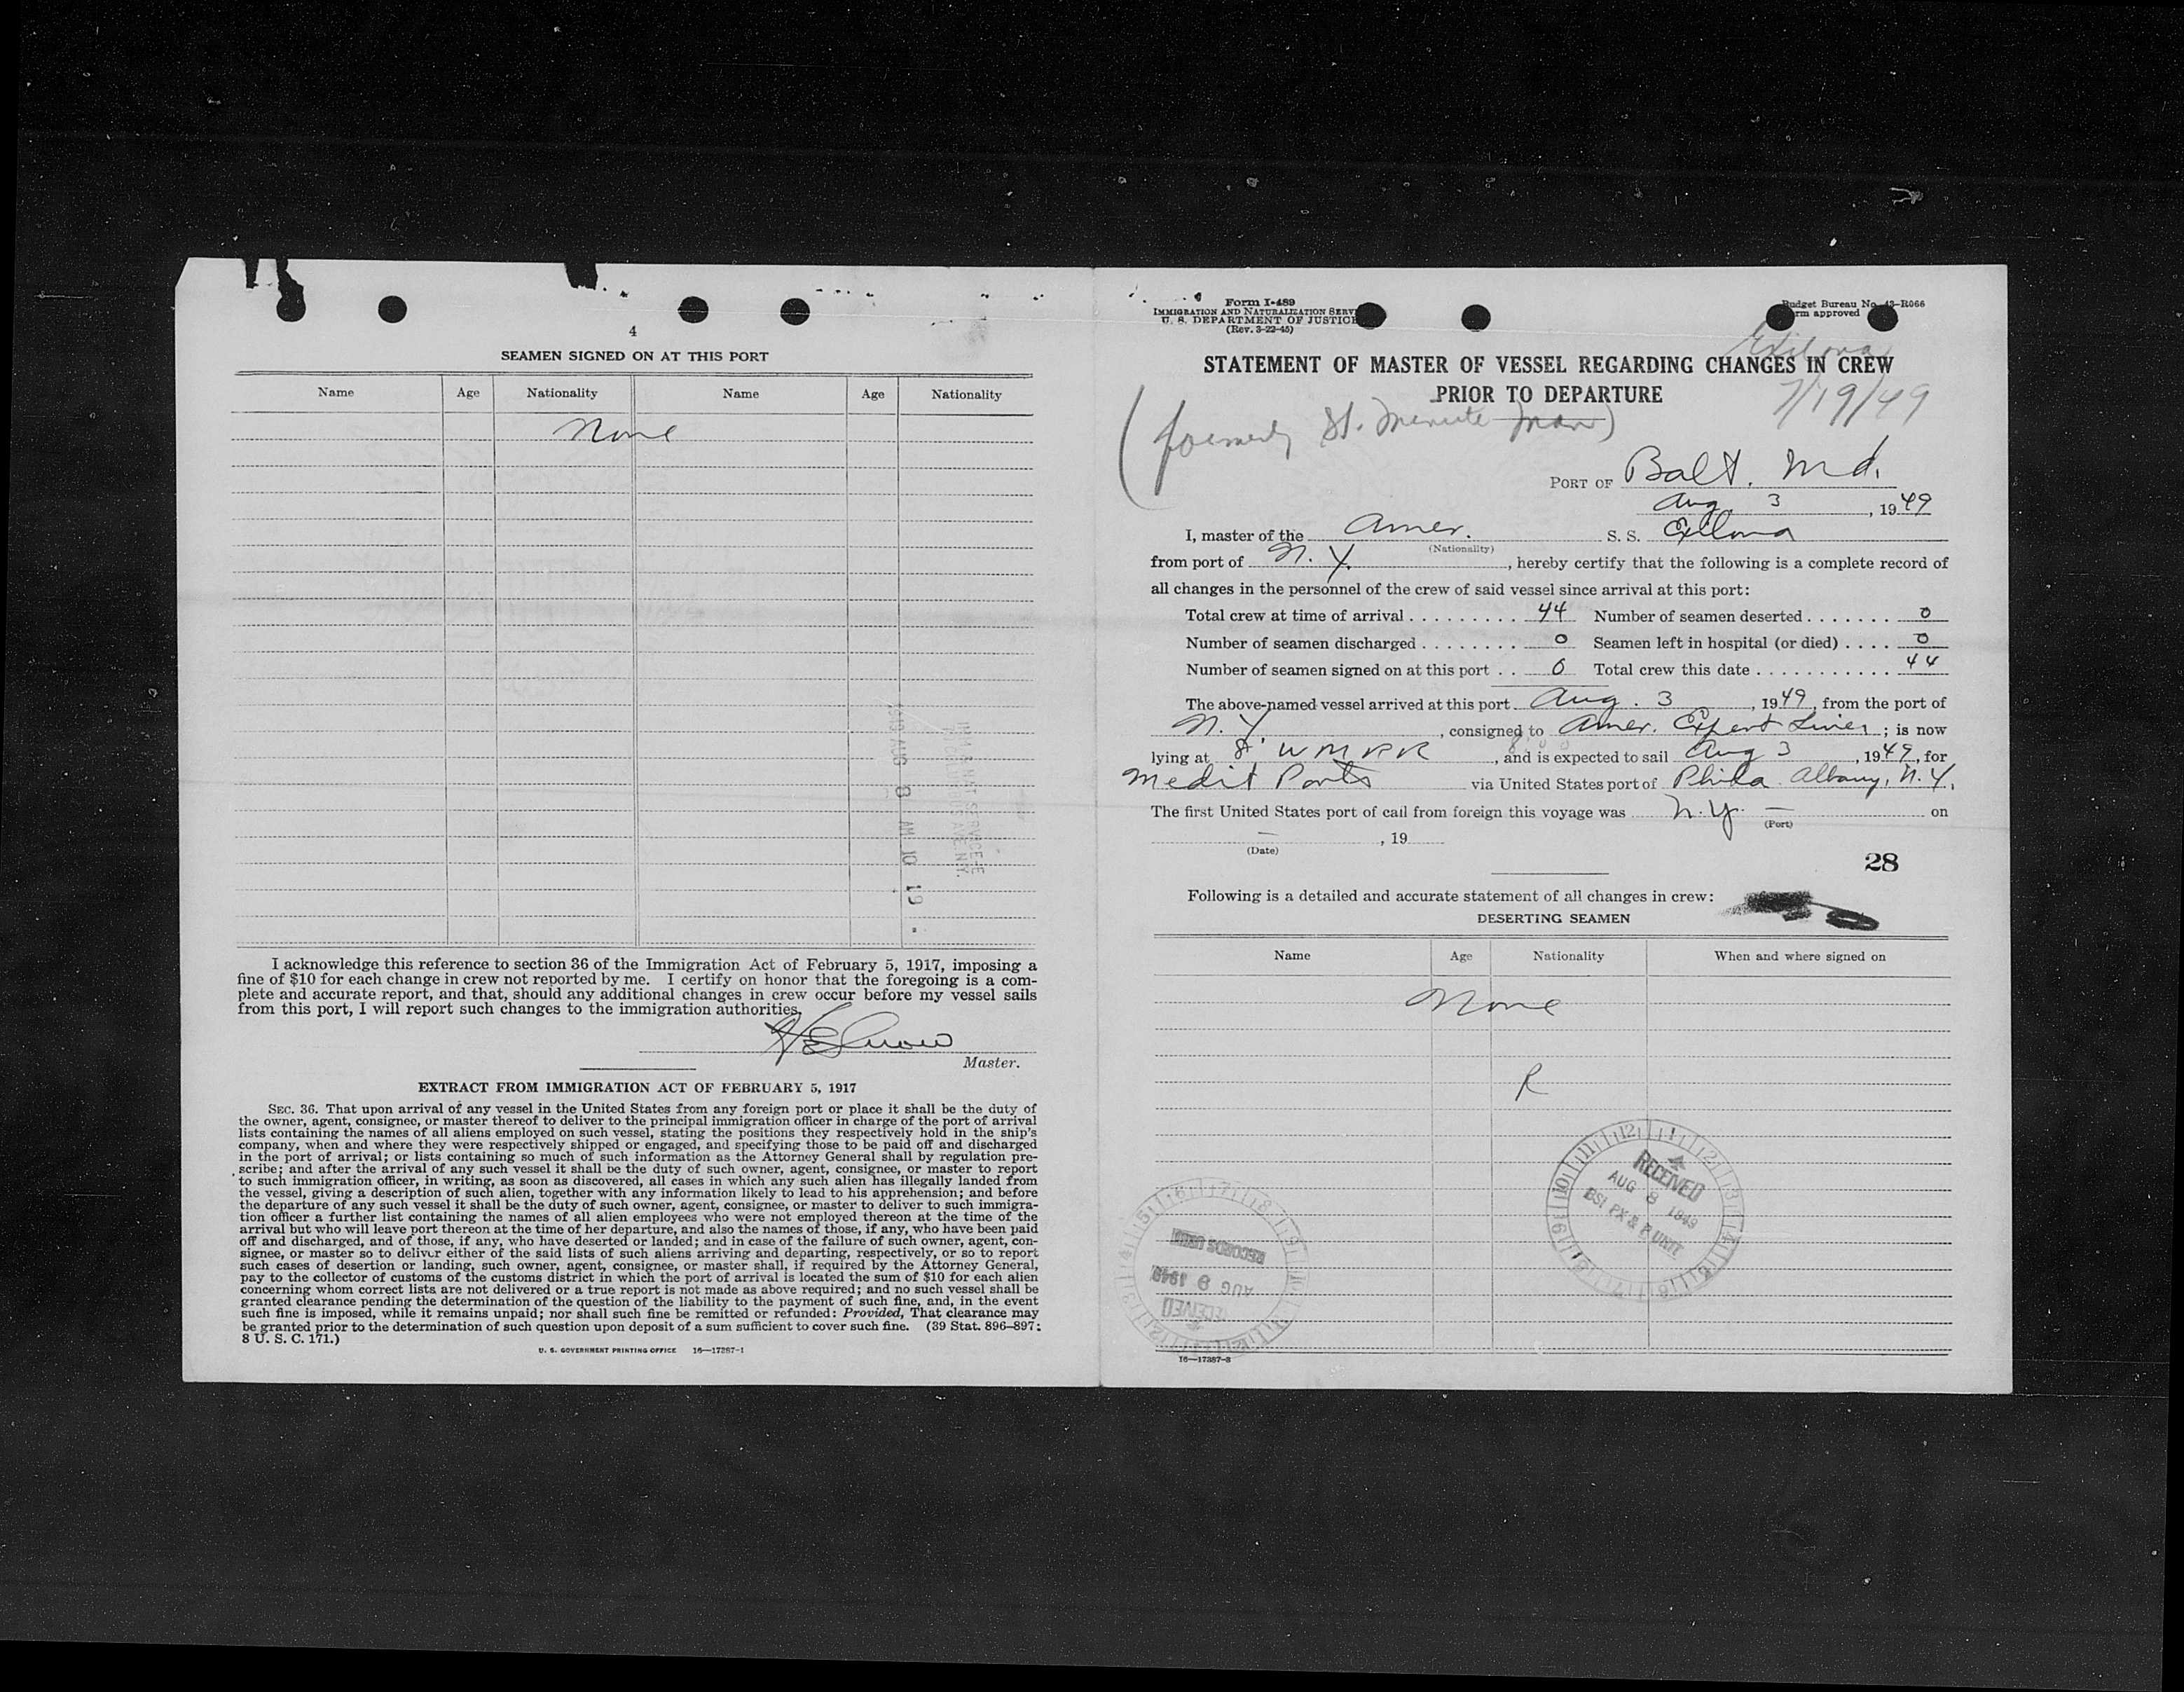 4
SEAMEN SIGNED ON AT THIS PORT
Name Age Nationality Name Age Nationality
None
1949 AUG 8 AM 10 19
I acknowledge this reference to section 36 of the Immigration Act of February 5, 1917, imposing a
fine of $10 for each change in crew not reported by me. I certify on honor that the foregoing is a com-
plete and accurate report, and that, should any additional changes in crew occur before my vessel sails
from this port, I will report such changes to the immigration authorities.
Master.
EXTRACT FROM IMMIGRATION ACT OF FEBRUARY 5, 1917
SEC. 36. That upon arrival of any vessel in the United States from any foreign port or place it shall be the duty of
the owner, agent, consignee, or master thereof to deliver to the principal immigration officer in charge of the port of arrival
lists containing the names of all aliens employed on such vessel, stating the positions they respectively hold in the ship's
company, when and where they were respectively shipped or engaged, and specifying those to be paid off and discharged
in the port of arrival; or lists containing so much of such information as the Attorney General shall by regulation pre-
scribe; and after the arrival of any such vessel it shall be the duty of such owner, agent, consignee, or master to report
to such immigration officer, in writing, as soon as discovered, all cases in which any such alien has illegally landed from
the vessel, giving a description of such alien, together with any information likely to lead to his apprehension; and before
the departure of any such vessel it shall be the duty of such owner, agent, consignee, or master to deliver to such immigra-
tion officer a further list containing the names of all alien employees who were not employed thereon at the time of the
arrival but who will leave port thereon at the time of her departure, and also the names of those, if any, who have been paid
off and discharged, and of those, if any, who have deserted or landed; and in case of the failure of such owner, agent, con-
signee, or master so to deliver either of the said lists of such aliens arriving and departing, respectively, or so to report
such cases of desertion or landing, such owner, agent, consignee, or master shall, if required by the Attorney General,
pay to the collector of customs of the customs district in which the port of arrival is located the sum of $10 for each alien
concerning whom correct lists are not delivered or a true report is not made as above required; and no such vessel shall be
granted clearance pending the determination of the question of the liability to the payment of such fine, and, in the event
such fine is imposed, while it remains unpaid; nor shall such fine be remitted or refunded: Provided, That clearance may
be granted prior to the determination of such question upon deposit of a sum sufficient to cover such fine. (39 Stat. 896–897;
8 U. S. C. 171.)
U. S. GOVERNMENT PRINTING OFFICE 16—17387-1
Form I-489
IMMIGRATION AND NATURALIZATION SERV
U. S. DEPARTMENT OF JUSTICE
(Rev. 3-22-45)
Budget Bureau No. 43-R066
rm approved
Exilona
STATEMENT OF MASTER OF VESSEL REGARDING CHANGES IN CREW
PRIOR TO DEPARTURE
7/19/49
(formerly St. Minute Man)
PORT OF Balt. Md.
Aug 3, 1949
I, master of the Amer. S. S. Exilona
(Nationality)
from port of N. Y., hereby certify that the following is a complete record of
all changes in the personnel of the crew of said vessel since arrival at this port:
Total crew at time of arrival 44 Number of seamen deserted 0
Number of seamen discharged 0 Seamen left in hospital (or died) 0
Number of seamen signed on at this port 0 Total crew this date 44
The above-named vessel arrived at this port Aug. 3, 1949, from the port of
N. Y., consigned to Amer. Export Lines; is now
lying at 8, W M R R, and is expected to sail Aug 3, 1949, for
Medit Ports via United States port of Phila Albany, N. Y.
The first United States port of call from foreign this voyage was N. Y. — on
(Port)
—, 19
(Date)
28
Following is a detailed and accurate statement of all changes in crew:
DESERTING SEAMEN
Name Age Nationality When and where signed on
None
R
RECEIVED
AUG 8 1949
BSI PX & P UNIT
RECEIVED
AUG 9 1949
RECORDS UNIT
16—17387-3